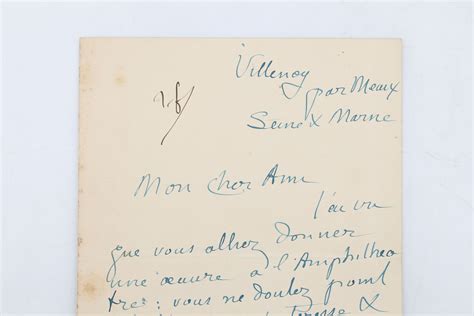 Villenoy
par Meaux
Seine & Marne
Mon cher Ami
j'ai vu
que vous allez donner
une œuvre à l'Amphithea
tre : vous ne doutez point
&